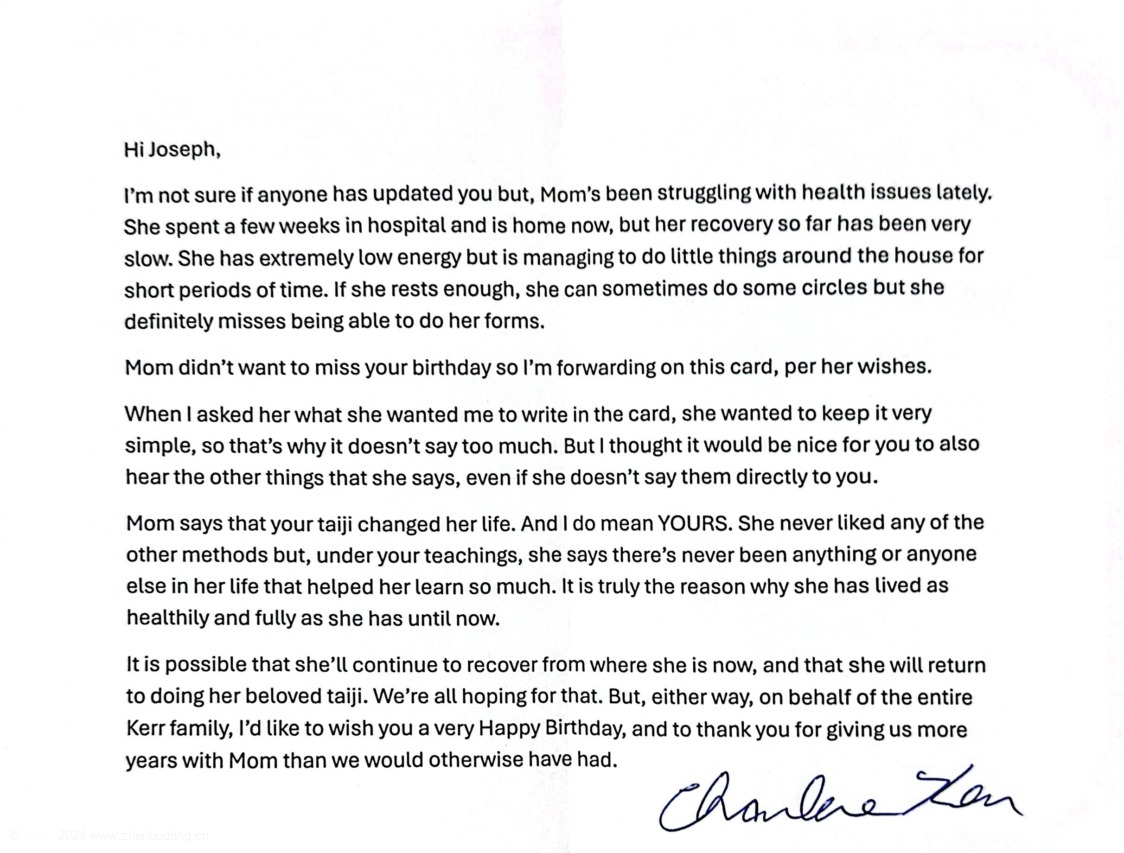 Hi Joseph,
I'm not sure if anyone has updated you but, Mom's been struggling with health issues lately.
She spent a few weeks in hospital and is home now, but her recovery so far has been very
slow. She has extremely low energy but is managing to do little things around the house for
short periods of time. If she rests enough, she can sometimes do some circles but she
definitely misses being able to do her forms.
Mom didn't want to miss your birthday so I'm forwarding on this card, per her wishes.
When I asked her what she wanted me to write in the card, she wanted to keep it very
simple, so that's why it doesn't say too much. But I thought it would be nice for you to also
hear the other things that she says, even if she doesn't say them directly to you.
Mom says that your taiji changed her life. And I do mean YOURS. She never liked any of the
other methods but, under your teachings, she says there's never been anything or anyone
else in her life that helped her learn so much. It is truly the reason why she has lived as
healthily and fully as she has until now.
It is possible that she'll continue to recover from where she is now, and that she will return
to doing her beloved taiji. We're all hoping for that. But, either way, on behalf of the entire
Kerr family, I'd like to wish you a very Happy Birthday, and to thank you for giving us more
years with Mom than we would otherwise have had.
Charlene Kerr
2024 www.zhenbudong.cn